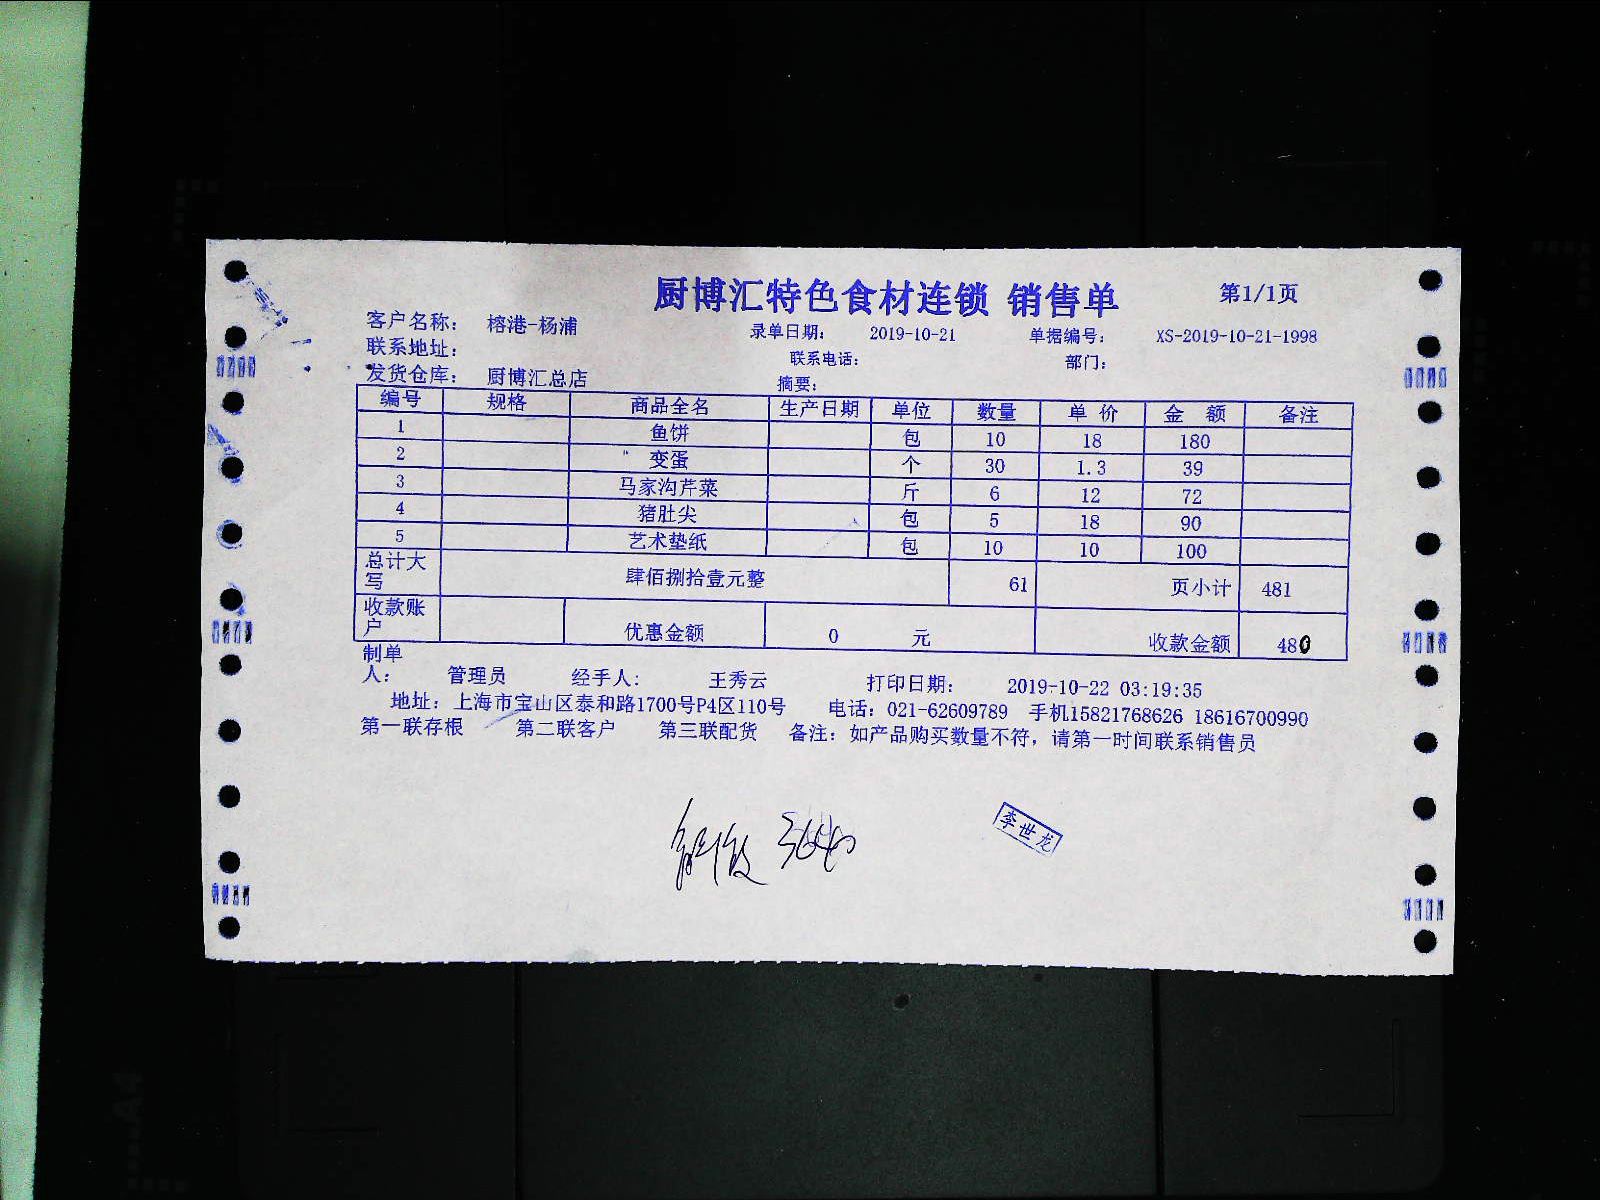 厨博汇特色食材连锁 销售单 第1/1页
客户名称： 榕港-杨浦 录单日期： 2019-10-21 单据编号： XS-2019-10-21-1998
联系地址： 联系电话： 部门：
发货仓库： 厨博汇总店 摘要：
编号 规格 商品全名 生产日期 单位 数量 单 价 金 额 备注
1 鱼饼 包 10 18 180
2 变蛋 个 30 1.3 39
3 马家沟芹菜 斤 6 12 72
4 猪肚尖 包 5 18 90
5 艺术垫纸 包 10 10 100
总计大写 肆佰捌拾壹元整 61 页小计 481
收款账户 优惠金额 0 元 收款金额 480
制单人： 管理员 经手人： 王秀云 打印日期： 2019-10-22 03:19:35
地址：上海市宝山区泰和路1700号P4区110号 电话：021-62609789 手机15821768626 18616700990
第一联存根 第二联客户 第三联配货 备注：如产品购买数量不符，请第一时间联系销售员
李世龙